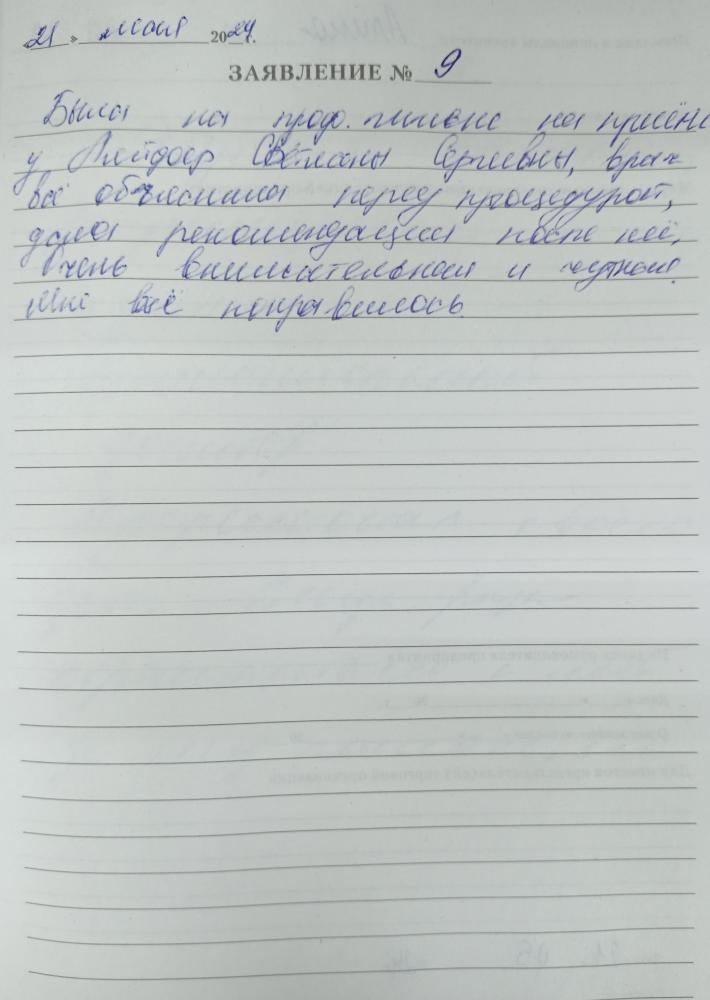 21 » мая 2024 г.
ЗАЯВЛЕНИЕ № 9
Была на проф. гигиене на приёме
у Светланы Сергеевны, врач
всё объяснила перед процедурой,
дала рекомендации после неё.
Очень внимательная и чуткая.
Мне всё понравилось.